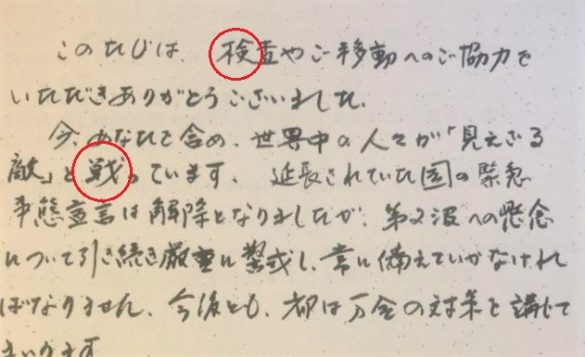 このたびは、検査やご移動へのご協力を
いただきありがとうございました。
今、あなたを含め、世界中の人々が「見えざる
敵」と戦っています。延長されていた国の緊急
事態宣言は解除となりましたが、第2波への懸念
について引き続き厳重に警戒し、常に備えていかなければ
ばなりません。今後とも、都は万全の対策を講じて
まいります